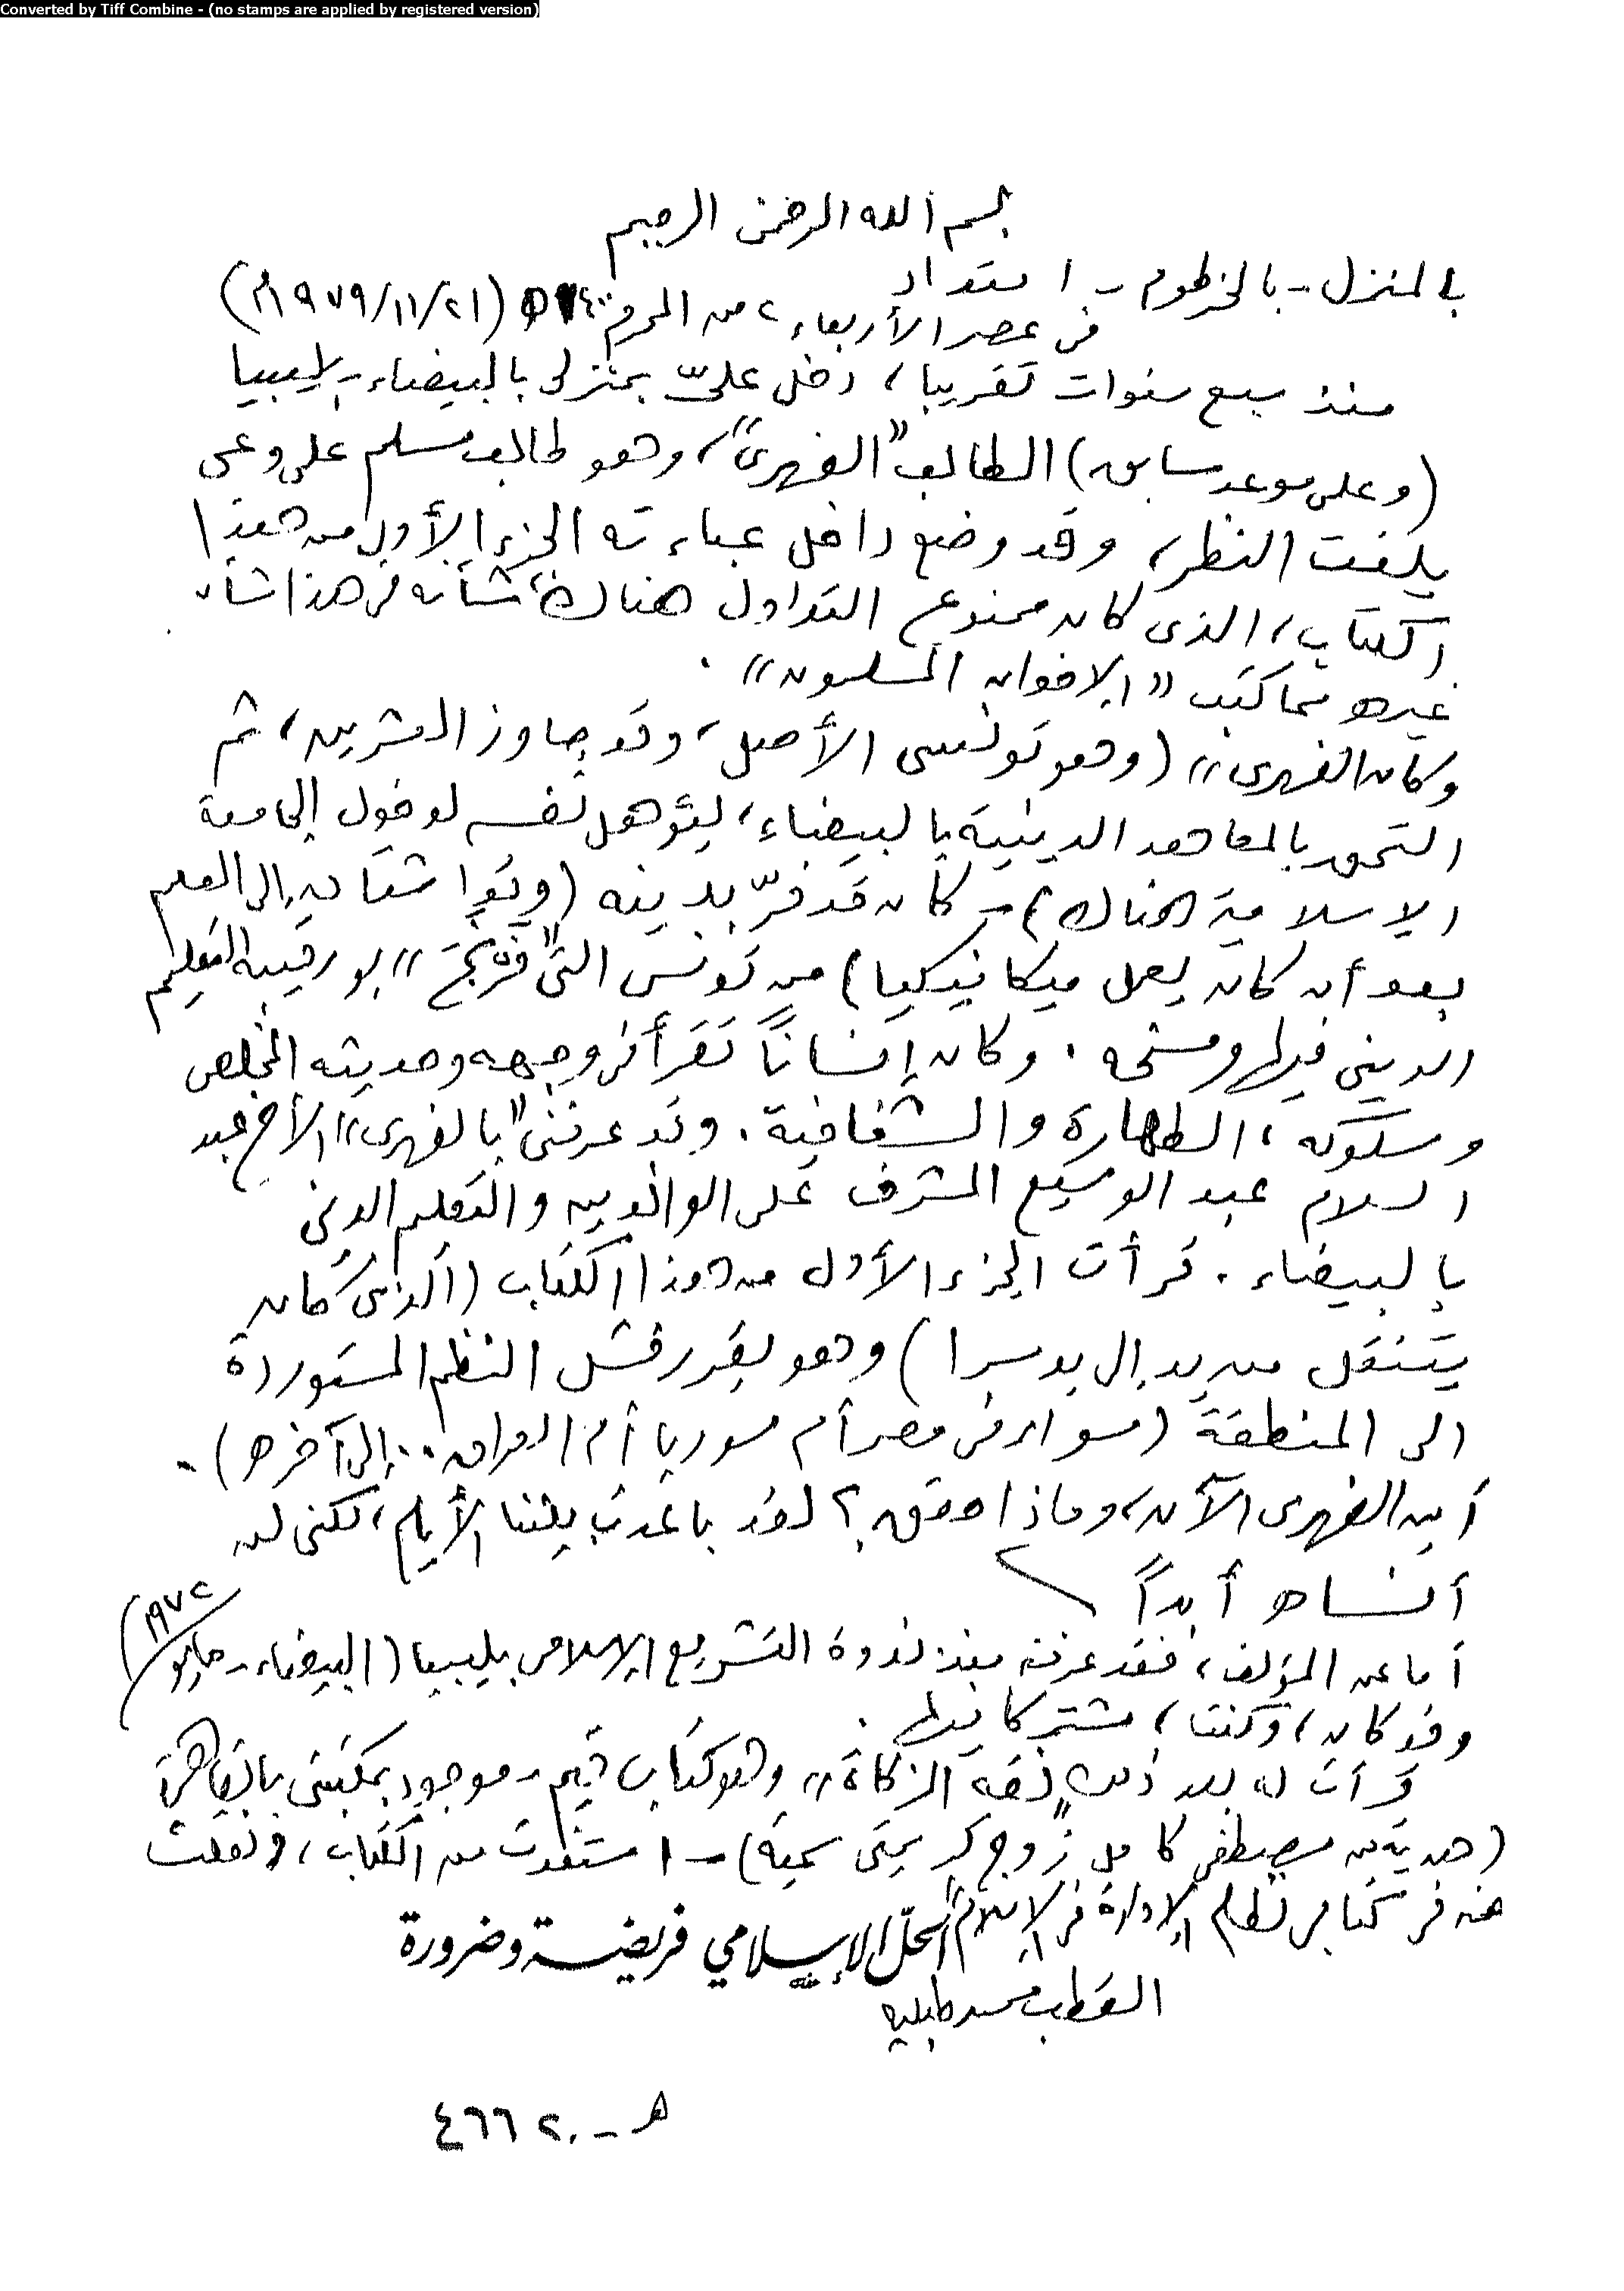 Converted by Tiff Combine - (no stamps are applied by registered version)
بسم الله الرحمن الرحيم
بالمنزل - بالخرطوم - امتداد
في عصر الأربعاء ٢ من المحرم ١٤٠٠ هـ (١٩٧٩/١١/٢١م)
منذ سبع سنوات تقريبا، دخل عليّ بمنزلى بالبيضاء - ليبيا
(وعلى موعد سابق) الطالب "الفهرى"، وهو طالب مسلم على وعى
يلفت النظر، وقد وضع داخل عباءته الجزء الأول من هذا
الكتاب، الذى كان ممنوع التداول هناك، شأنه فى هذا شأن
غيره مما كتب "الإخوان المسلمون".
وكان "الفهرى" (وهو تونسى الأصل، وقد جاوز العشرين، ثم
التحق بالمعاهد الدينية بالبيضاء، ليؤهل نفسه لدخول الجامعة
الإسلامية هناك) - كان قد فرّ بدينه ( إلى العلم
بعد أن كان يعمل ميكانيكيا) من تونس التى "فرنج" بورقيبة التعليم
الدينى فيها ومسخه. وكان إنسانًا تقرأ فى وجهه وحديثه المخلص
وسلوكه، الطهارة والشفافية. وقد عرفنى "بالفهرى" الأخ عبد
السلام عبد الوسيع المشرف على الوافدين والتعليم الدينى
بالبيضاء. قرأت الجزء الأول من هذا الكتاب (الذى كان
يتنقل من يد إلى يد سرا) وهو يقرر فشل النظم المستوردة
الى المنطقة (سواء فى مصر أم سوريا أم العراق.. إلى آخره).
أين الفهرى الآن، وماذا حقق؟ لقد باعدت بيننا الأيام، لكنى لن
أنساه أبداً
أما عن المؤلف، فقد عرفته منذ ندوة التشريع الإسلامى بليبيا (البيضاء - مايو ١٩٧٢)
وقد كان، وكنت، مشتركا فيها.
قرأت له بعد ذلك "فقه الزكاة" وهو كتاب قيم - موجود بمكتبتى بالقاهرة
(هدية من مصطفى كامل زوج كريمتى سمية) - استفدت من الكتاب، ونقلت
عنه فى كتابى نظام الإدارة فى الإسلام
الحلّ الإسلامي فريضة وضرورة
القطب محمد طبليه
هـ - ٤٦٦٢٠